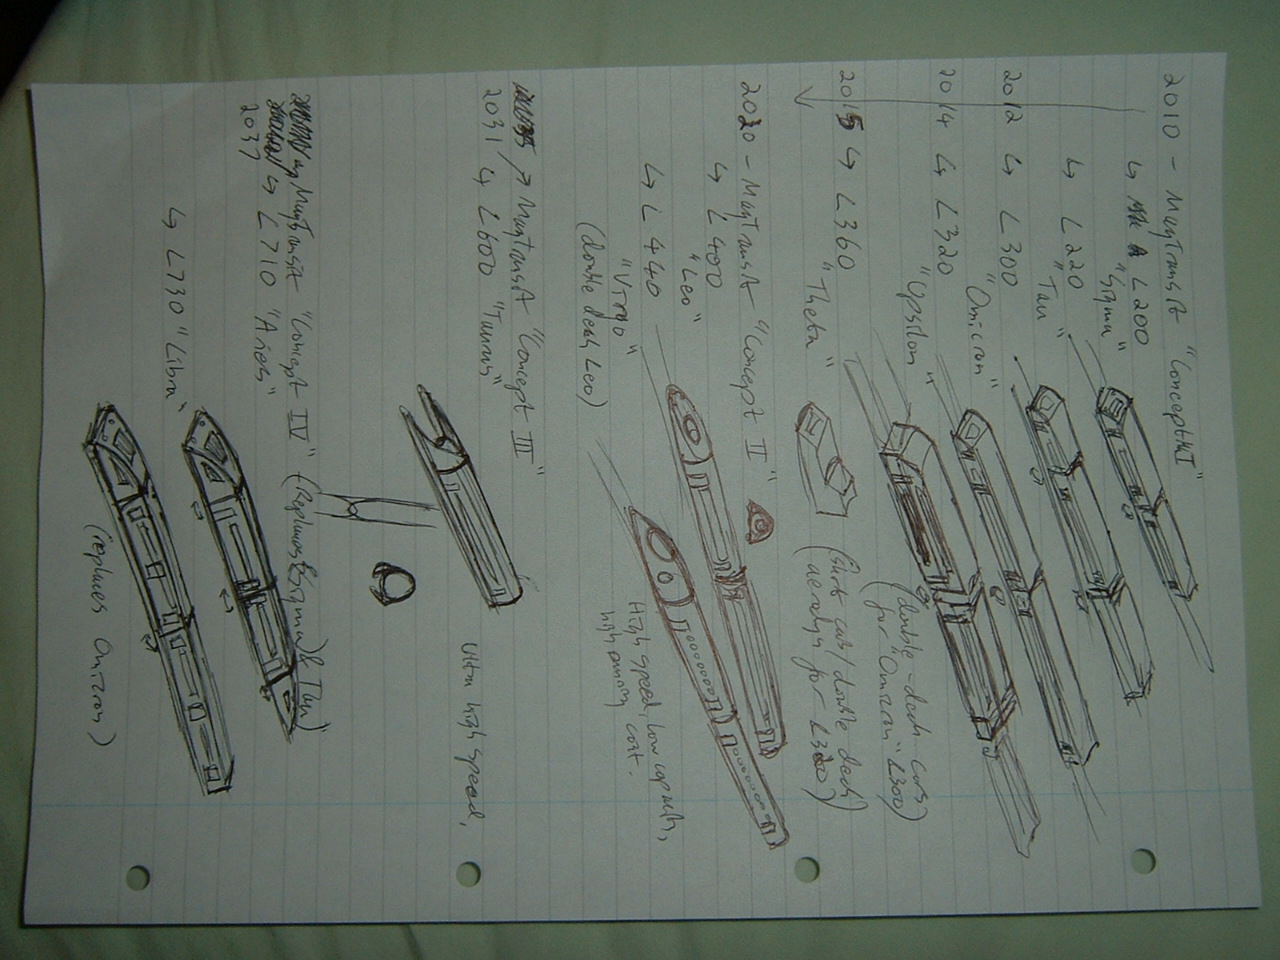 2010 - MagTransit "Concept I"
↳ L200
"Sigma"
↳ L220
"Tau"
2012 ↳ L300
"Omicron"
2014 ↳ L320
"Upsilon"
(double-deck cars
for "Omicron" L300)
2015 ↳ L360
"Theta"
(first car/double deck
for L320)
2020 - MagTransit "Concept II"
↳ L400
"Leo"
↳ L440
"Virgo"
(double deck Leo)
High speed, low capacity,
high running cost.
→ MagTransit "Concept III"
2031 ↳ L600 "Taurus"
Ultra high speed,
MagTransit "Concept IV" (Replaces Sigma & Tau)
2037 ↳ L710 "Aries"
↳ L730 "Libra"
(replaces Omicron)